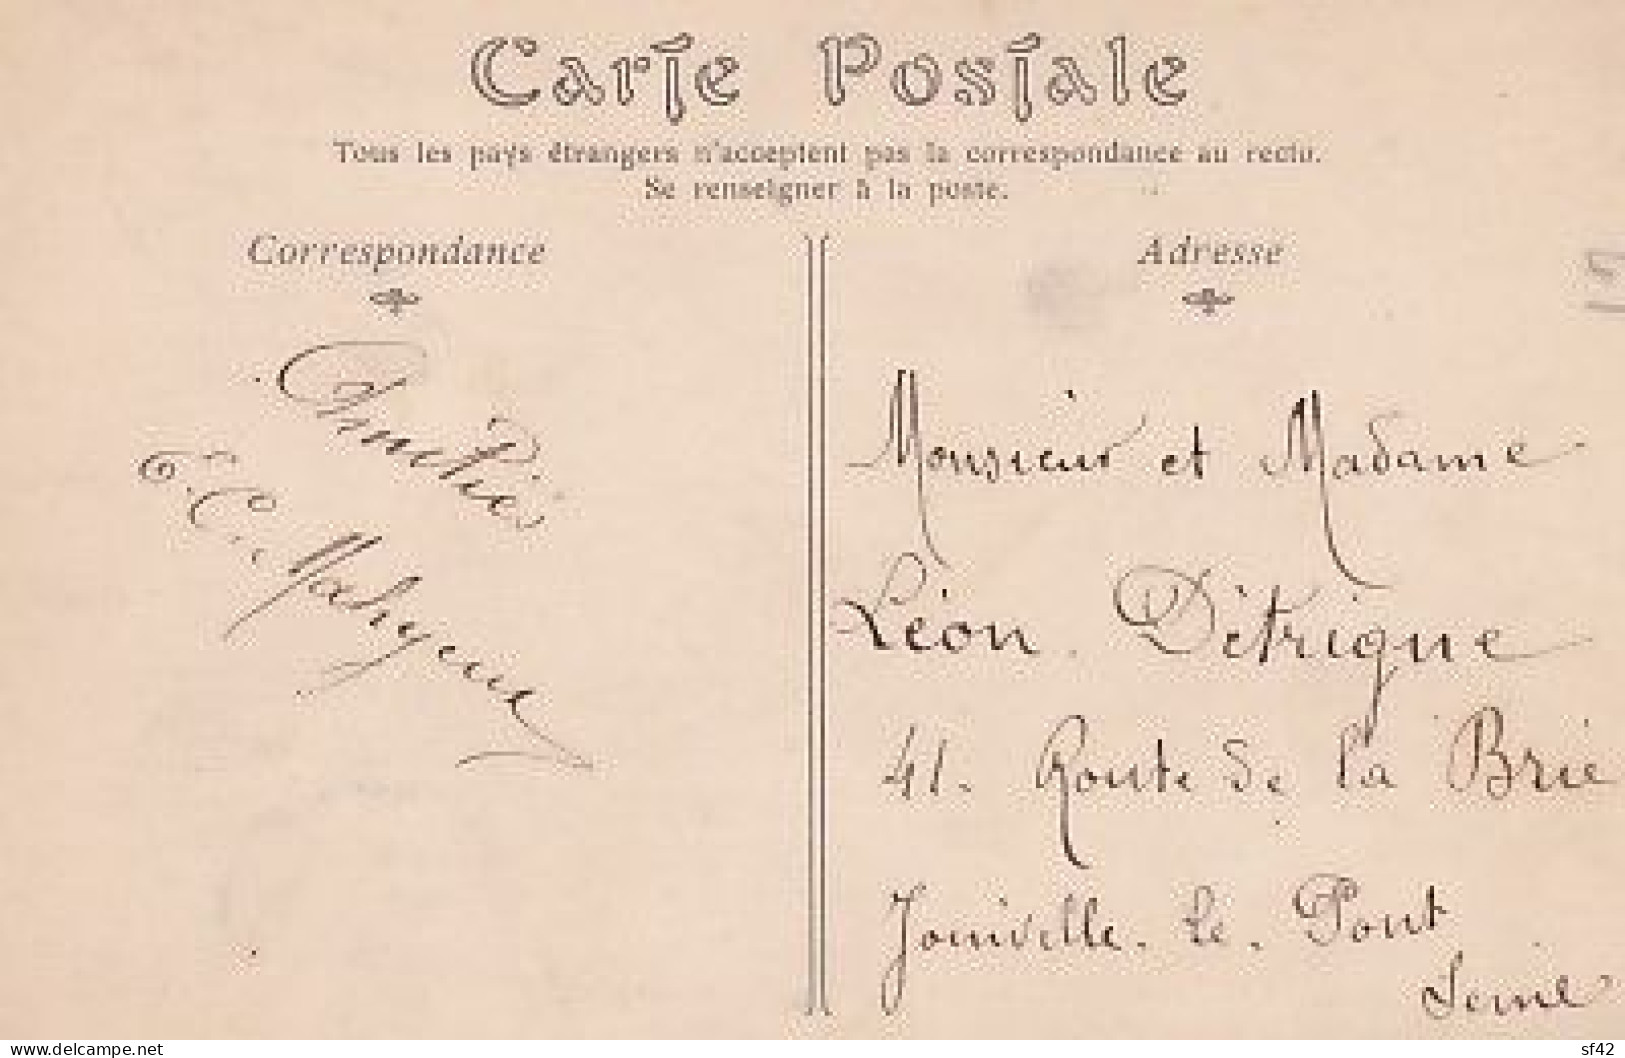 Carte Postale
Tous les pays étrangers n'acceptent pas la correspondance au recto.
Se renseigner à la poste.
Correspondance
Adresse
Amitiés
Monsieur et Madame
Léon Détrigne
41. Route de la Brie
Joinville. le. Pont
Seine
delcampe.net
sf42